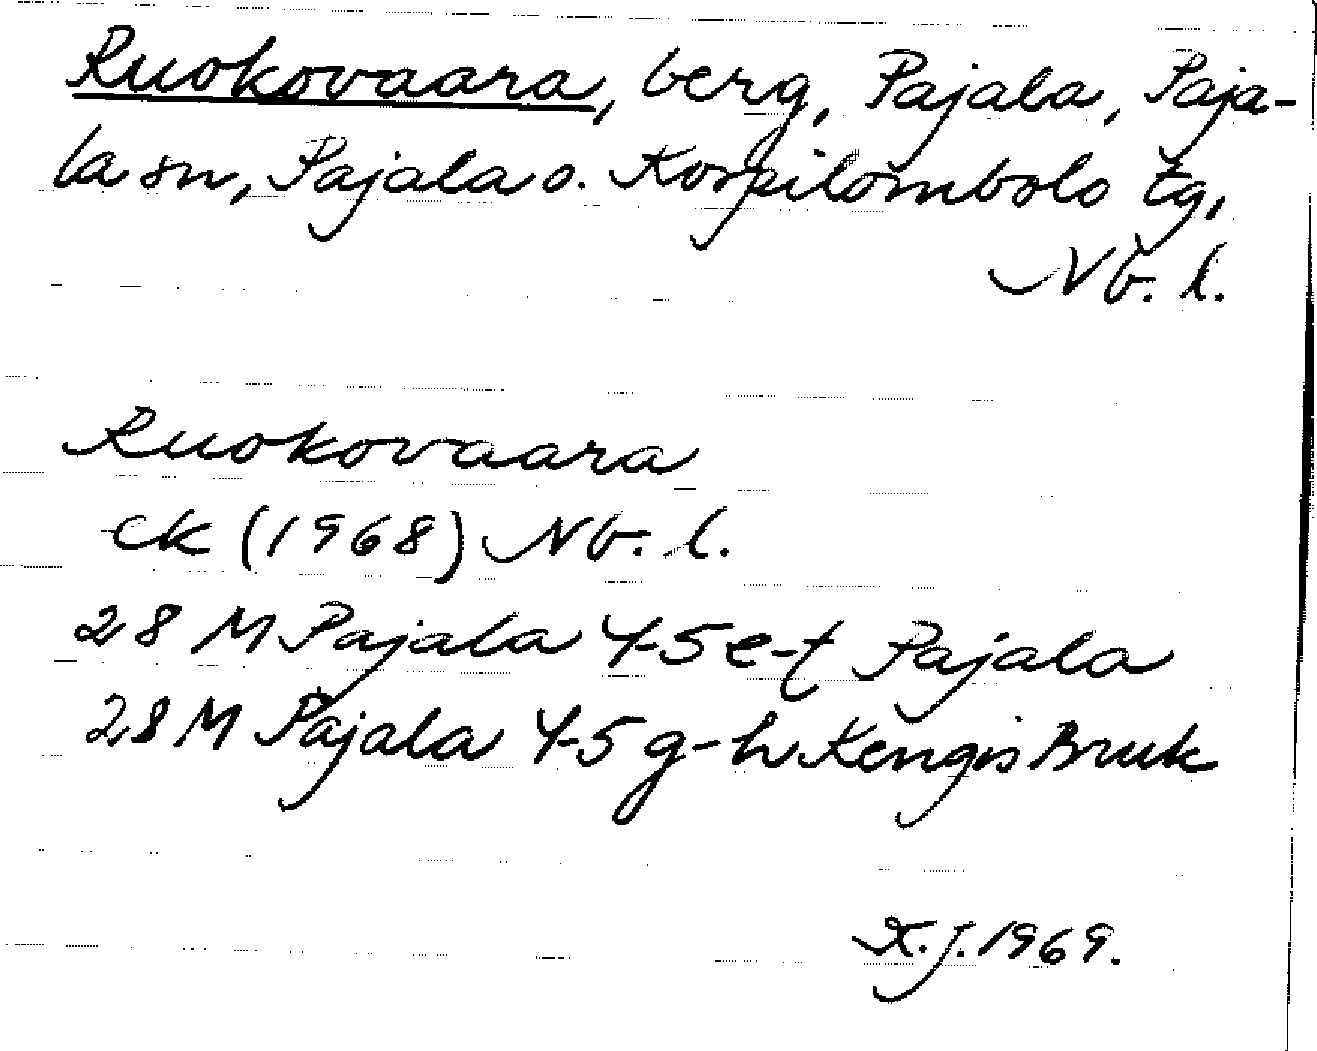 Ruokovaara, berg, Pajala, Paja-
la sn, Pajala o. Korpilombolo tg,
Nb. l.
Ruokovaara
ek (1968) Nb. l.
28 M Pajala 4-5 e-f Pajala
28 M Pajala 4-5 g-h Kengis Bruk
K.J. 1969.